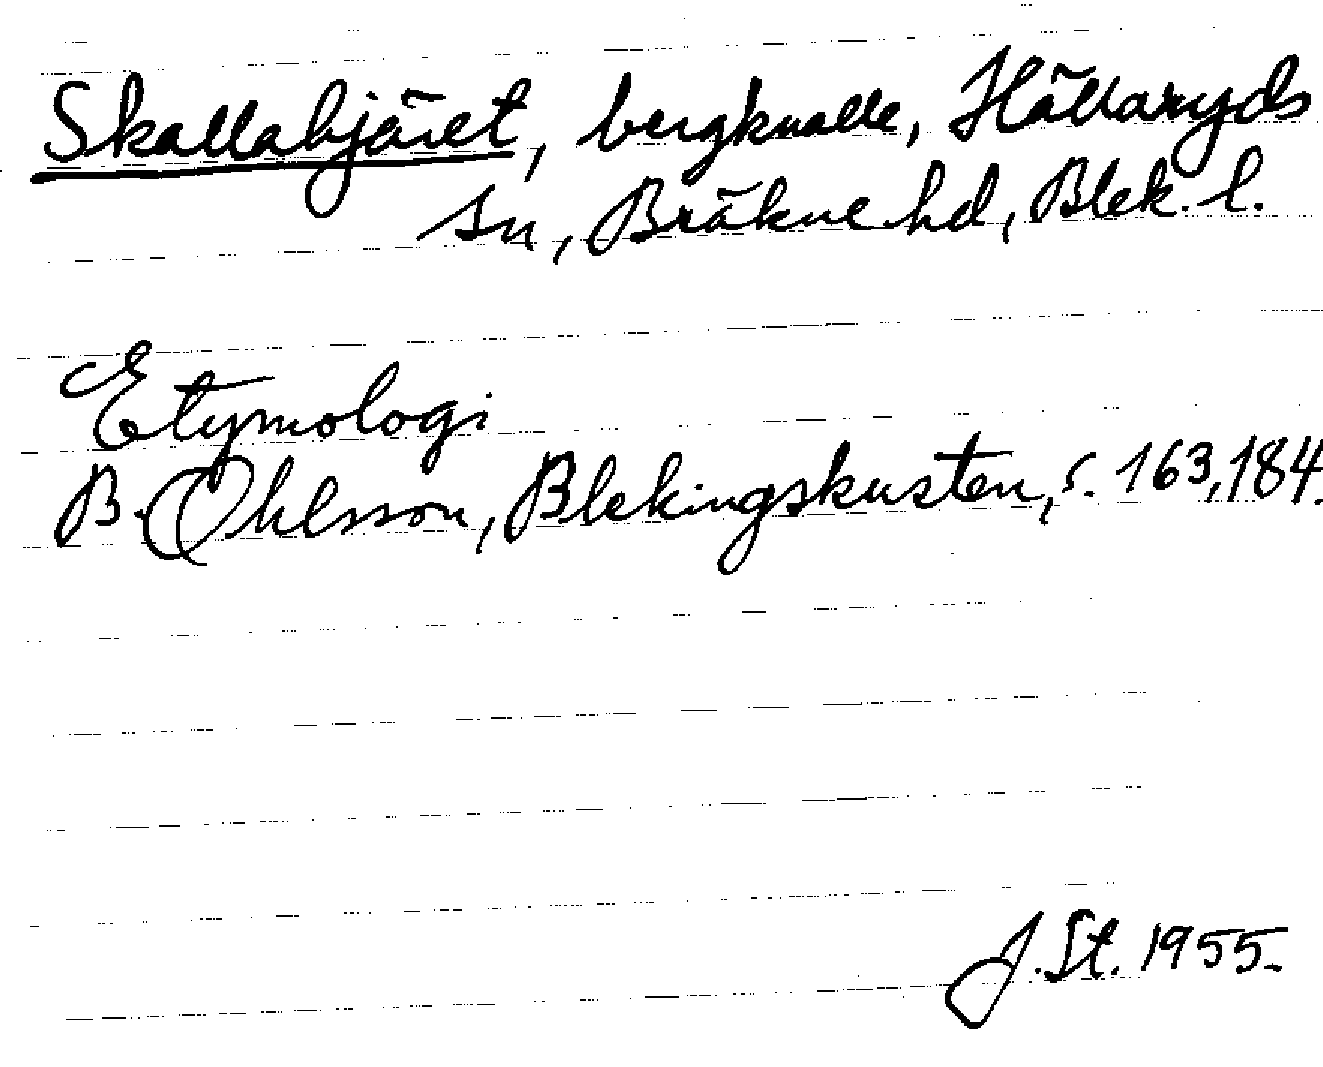 Skallabjäret, bergknalle, Hällaryds
sn, Bräkne hd, Blek. l.
Etymologi
B. Ohlsson, Blekingskusten, s. 163, 184.
J. St. 1955.